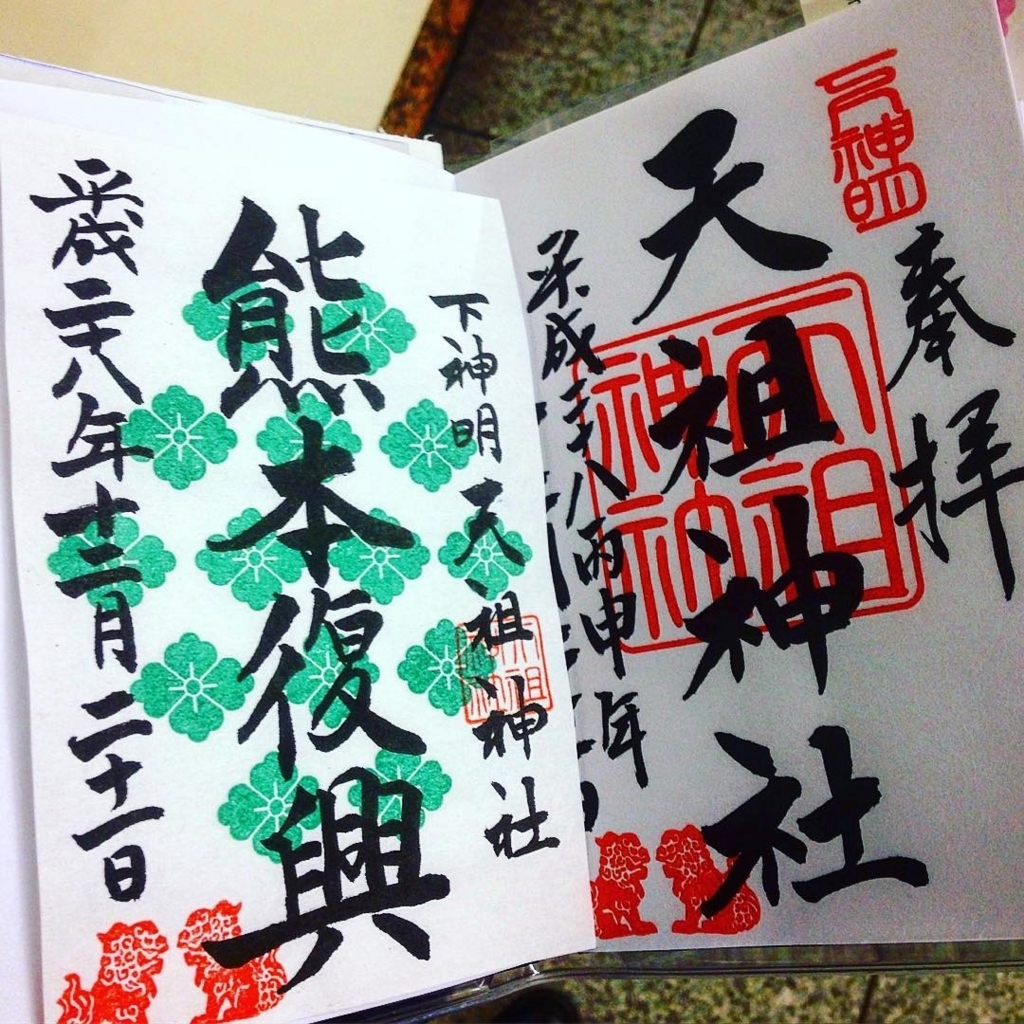 奉拝
下神明
天祖神社
天祖神社
平成二十八丙申年
下神明天祖神社
天祖神社
熊本復興
平成二十八年十二月二十一日